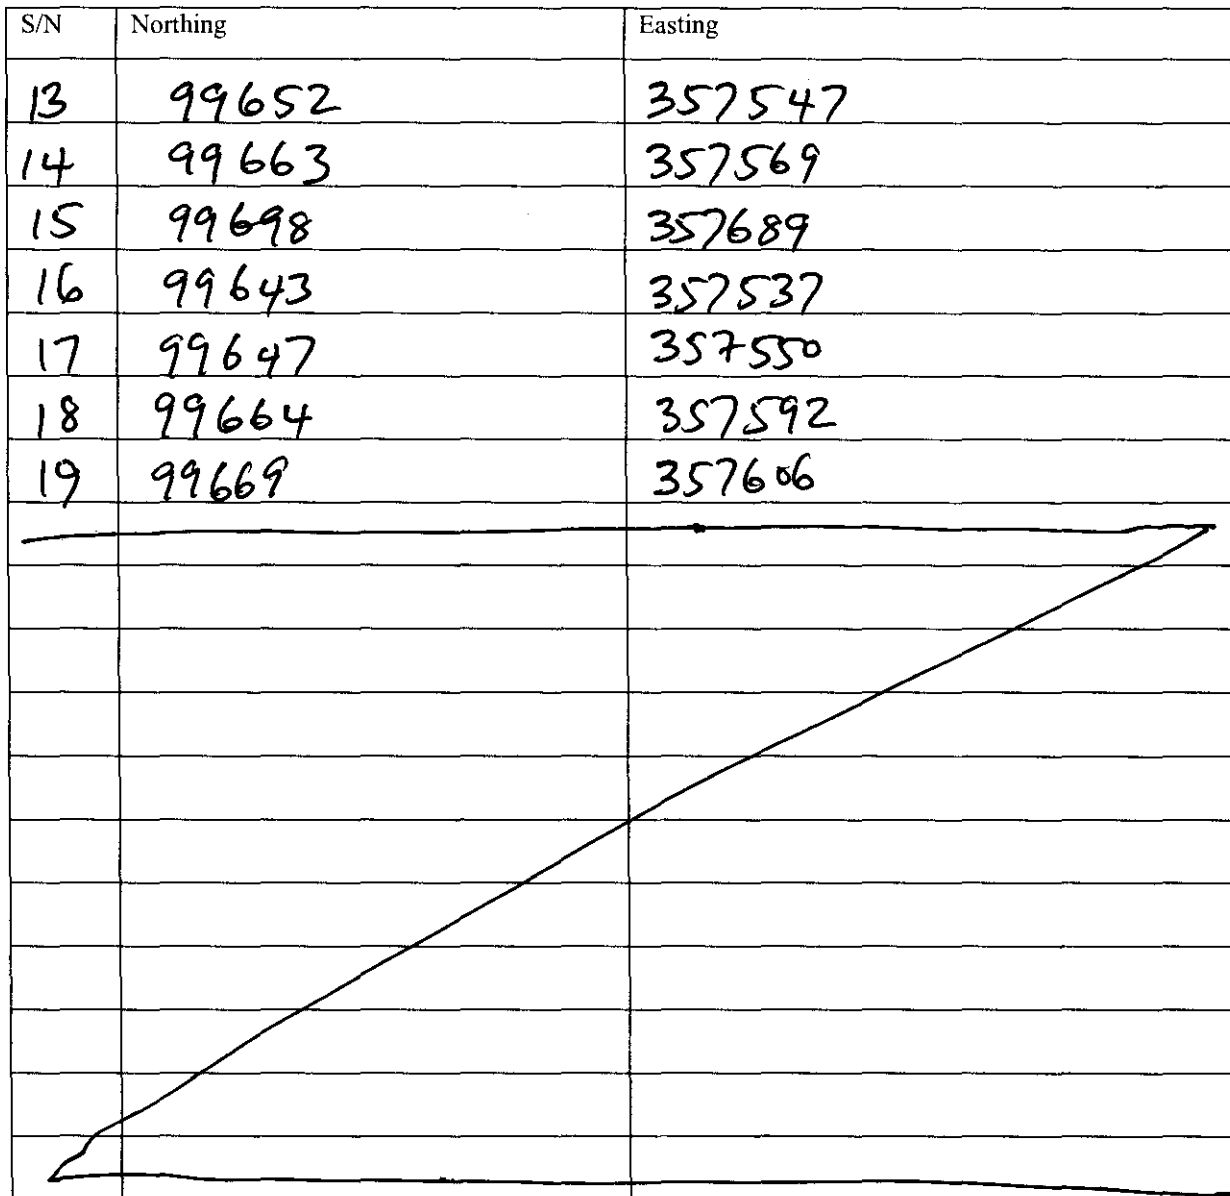 S/N Northing Easting
13 99652 357547
14 99663 357569
15 99698 357689
16 99643 357537
17 99647 357550
18 99664 357592
19 99669 357606